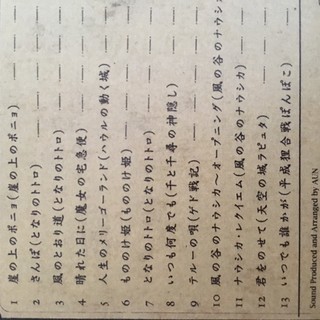 1 崖の上のポニョ(崖の上のポニョ)
2 さんぽ(となりのトトロ)
3 風のとおり道(となりのトトロ)
4 晴れた日に(魔女の宅急便)
5 人生のメリーゴーランド(ハウルの動く城)
6 もののけ姫(もののけ姫)
7 となりのトトロ(となりのトトロ)
8 いつも何度でも(千と千尋の神隠し)
9 テルーの唄(ゲド戦記)
10 風の谷のナウシカ-オープニング(風の谷のナウシカ)
11 ナウシカ・レクイエム(風の谷のナウシカ)
12 君をのせて(天空の城ラピュタ)
13 いつでも誰かが(平成狸合戦ぽんぽこ)
Sound Produced and Arranged by AUN